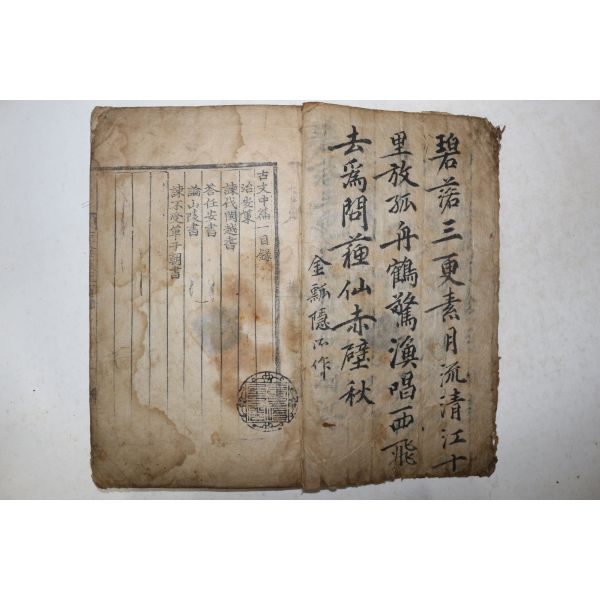 碧落三更素月流清江十
里放孤舟鶴驚漁唱西飛
去爲問蘓仙赤壁秋
金瓢隱作
古文中篇一目錄
治安策
諫伐閩越書
荅任安書
論山陵書
諫不受單于朝書